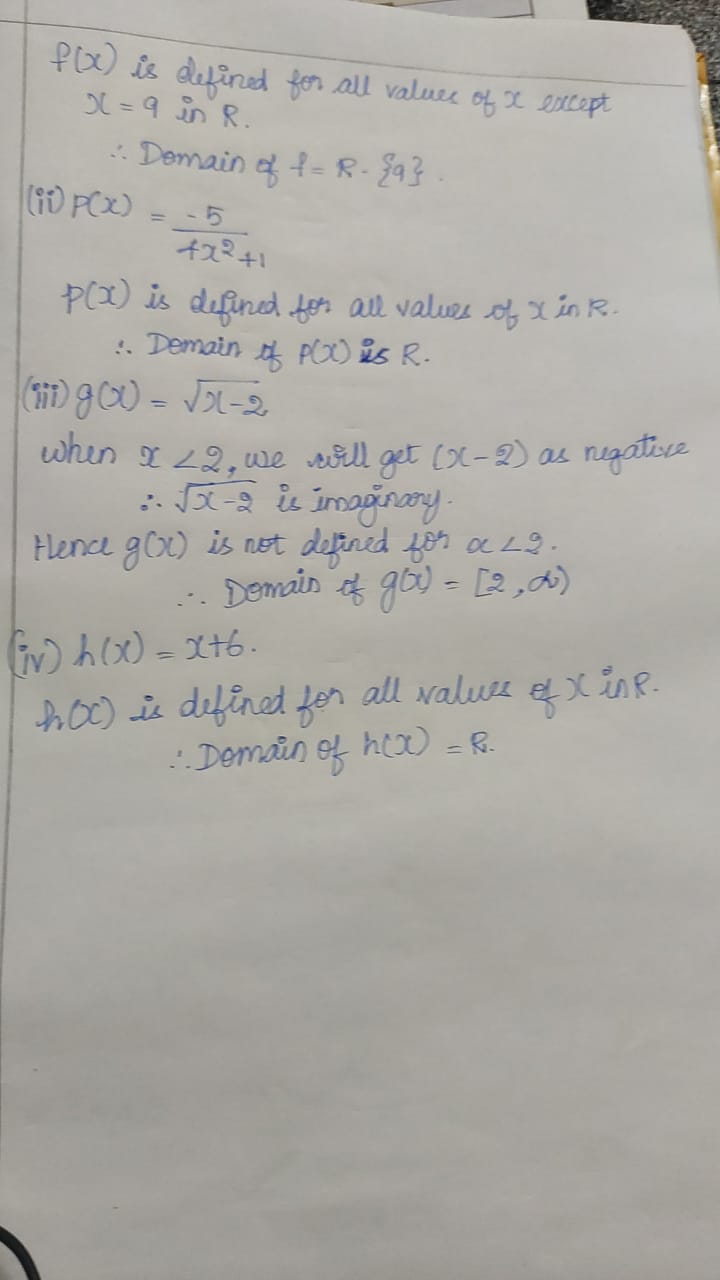 f(x) is defined for all values of x except
x = 9 in R.
∴ Domain of f = R - {9}.
(ii) P(x) = -5 / 4x² + 1
p(x) is defined for all values of x in R.
∴ Domain of p(x) is R.
(iii) g(x) = √x-2
when x < 2, we will get (x - 2) as negative
∴ √x-2 is imaginary.
Hence g(x) is not defined for x < 2.
∴ Domain of g(x) = [2, ∞)
(iv) h(x) = x+6.
h(x) is defined for all values of x in R.
∴ Domain of h(x) = R.